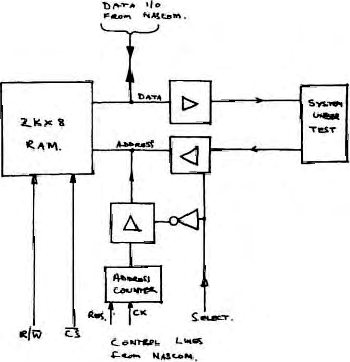 DATA I/O
FROM NASCOM.
DATA
2K×8
RAM.
SYSTEM
UNDER
TEST
ADDRESS
ADDRESS
COUNTER
RES.
CK
SELECT.
R/W̅
C̅S̅
CONTROL LINES
FROM NASCOM.